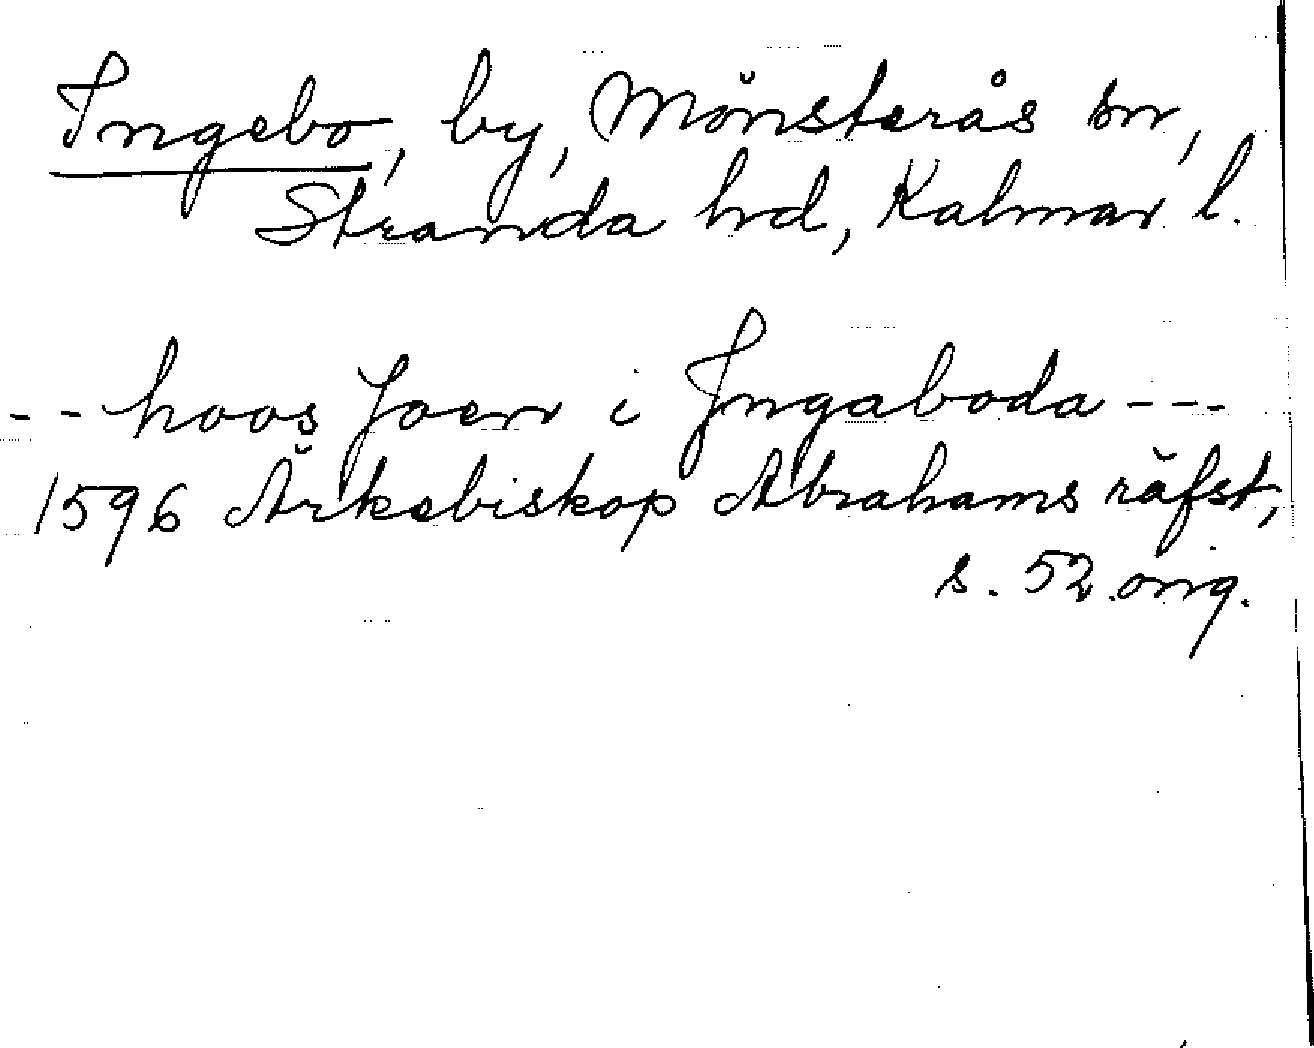 Ingebo, by, Mönsterås sn,
Stranda hrd, Kalmar l.
-- hoos Joen i Jngaboda ---
1596 Ärkebiskop Abrahams räfst,
s. 52. orig.